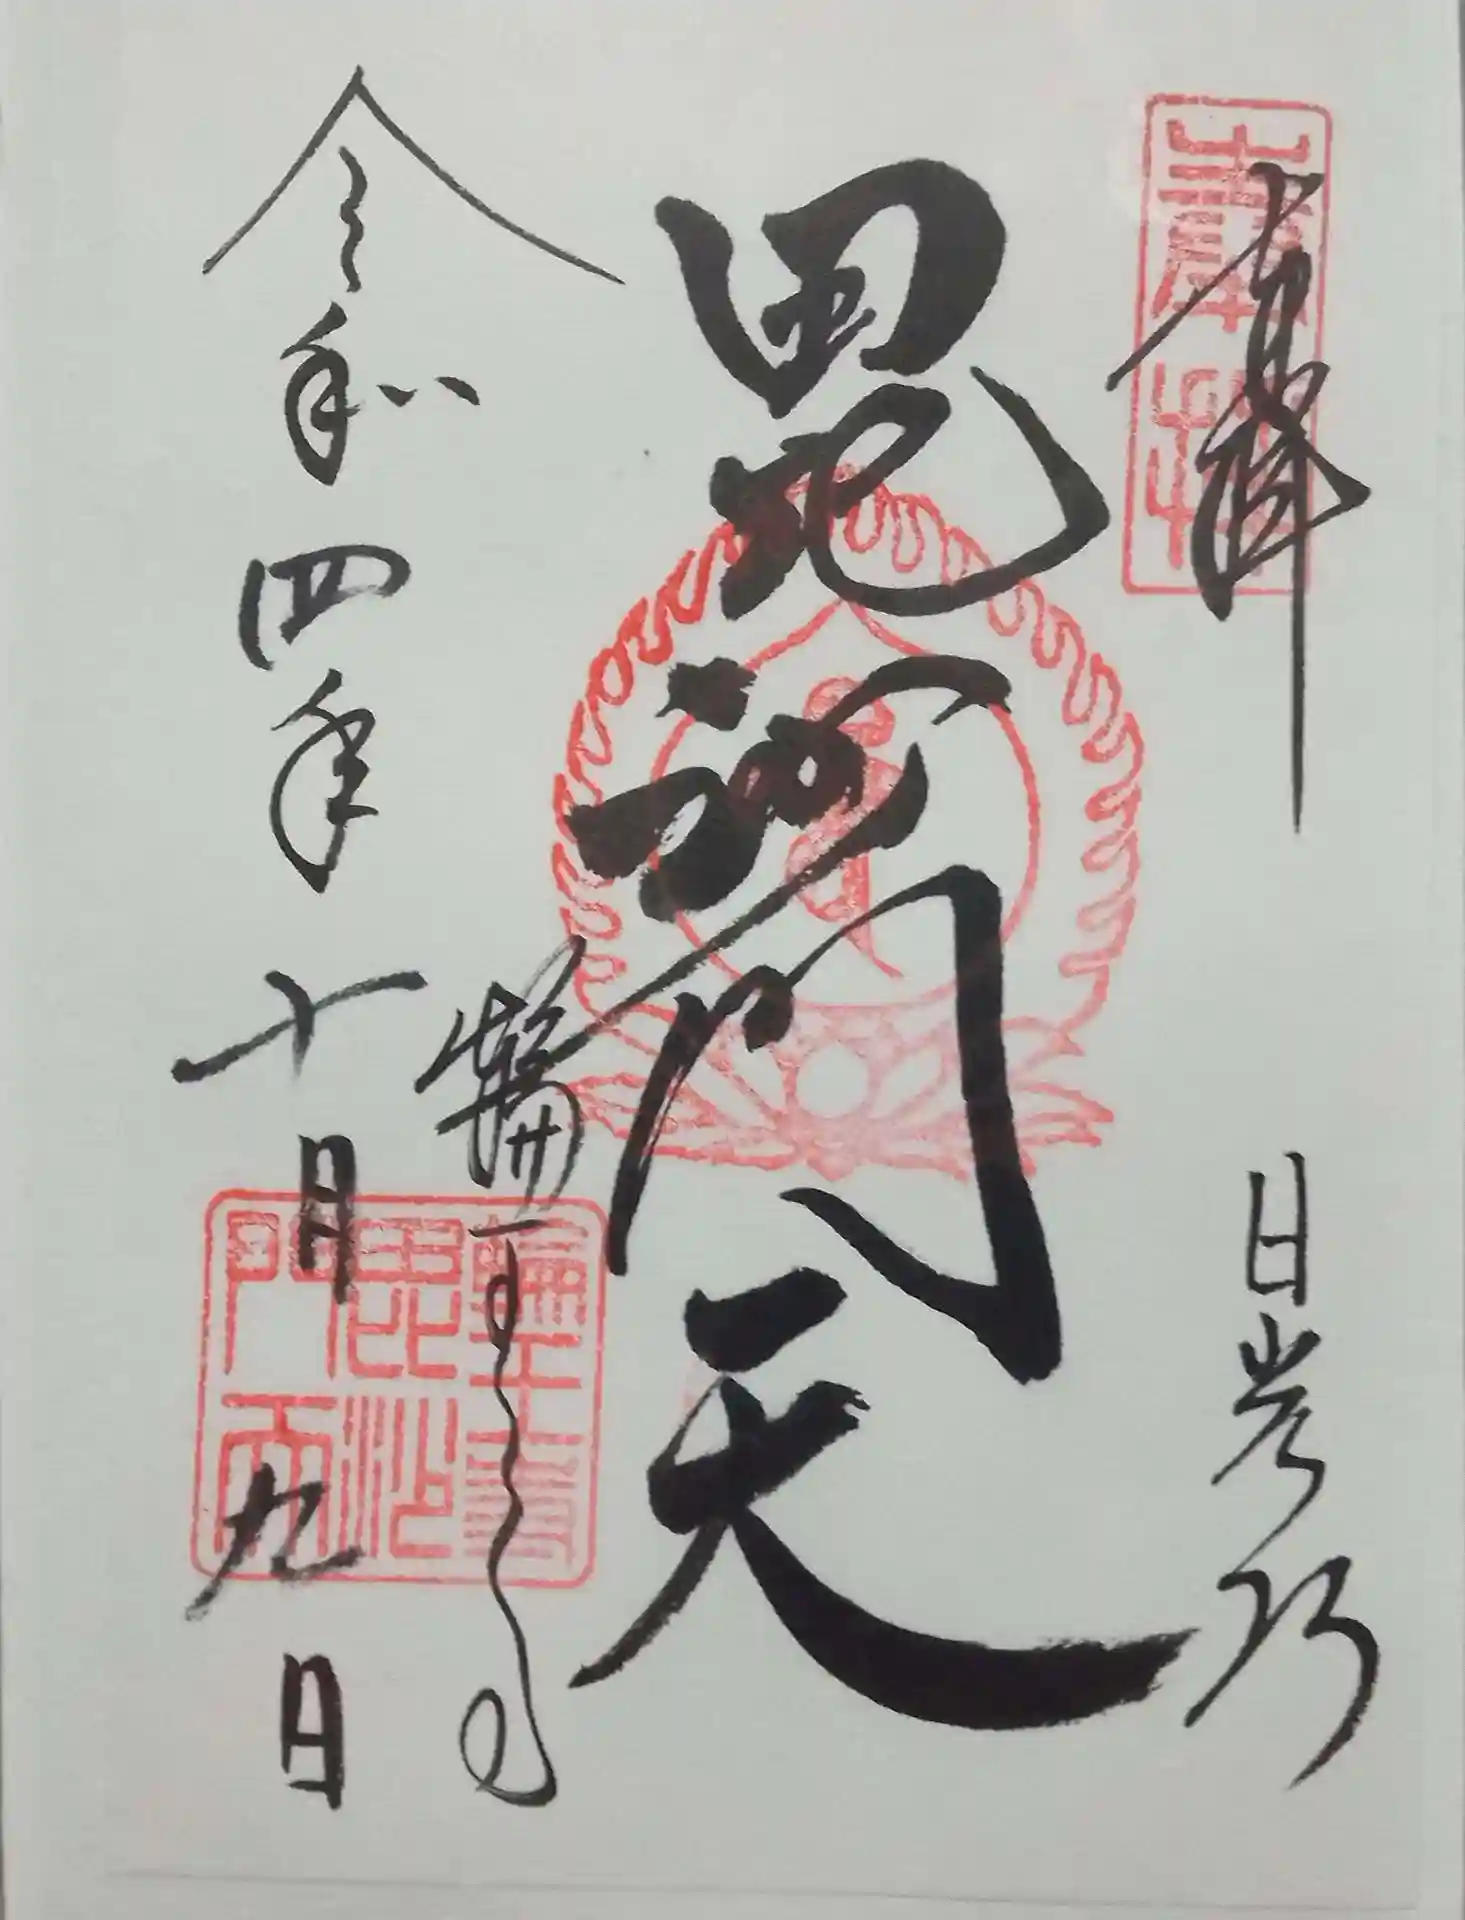 奉拝
奉拝
日光山
毘沙門天
輪王寺
令和四年十月九日
輪王寺
毘沙
門天